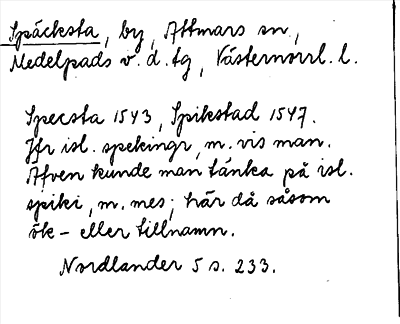 Späcksta, by, Attmars sn,
Medelpads v. d. tg, Västernorrl. l.
Specsta 1543, Spikstad 1547.
Jfr isl. spekingr, m. vis man.
Äfven kunde man tänka på isl.
spiki, m. mes; här då såsom
ök- eller tillnamn.
Nordlander 5 s. 233.